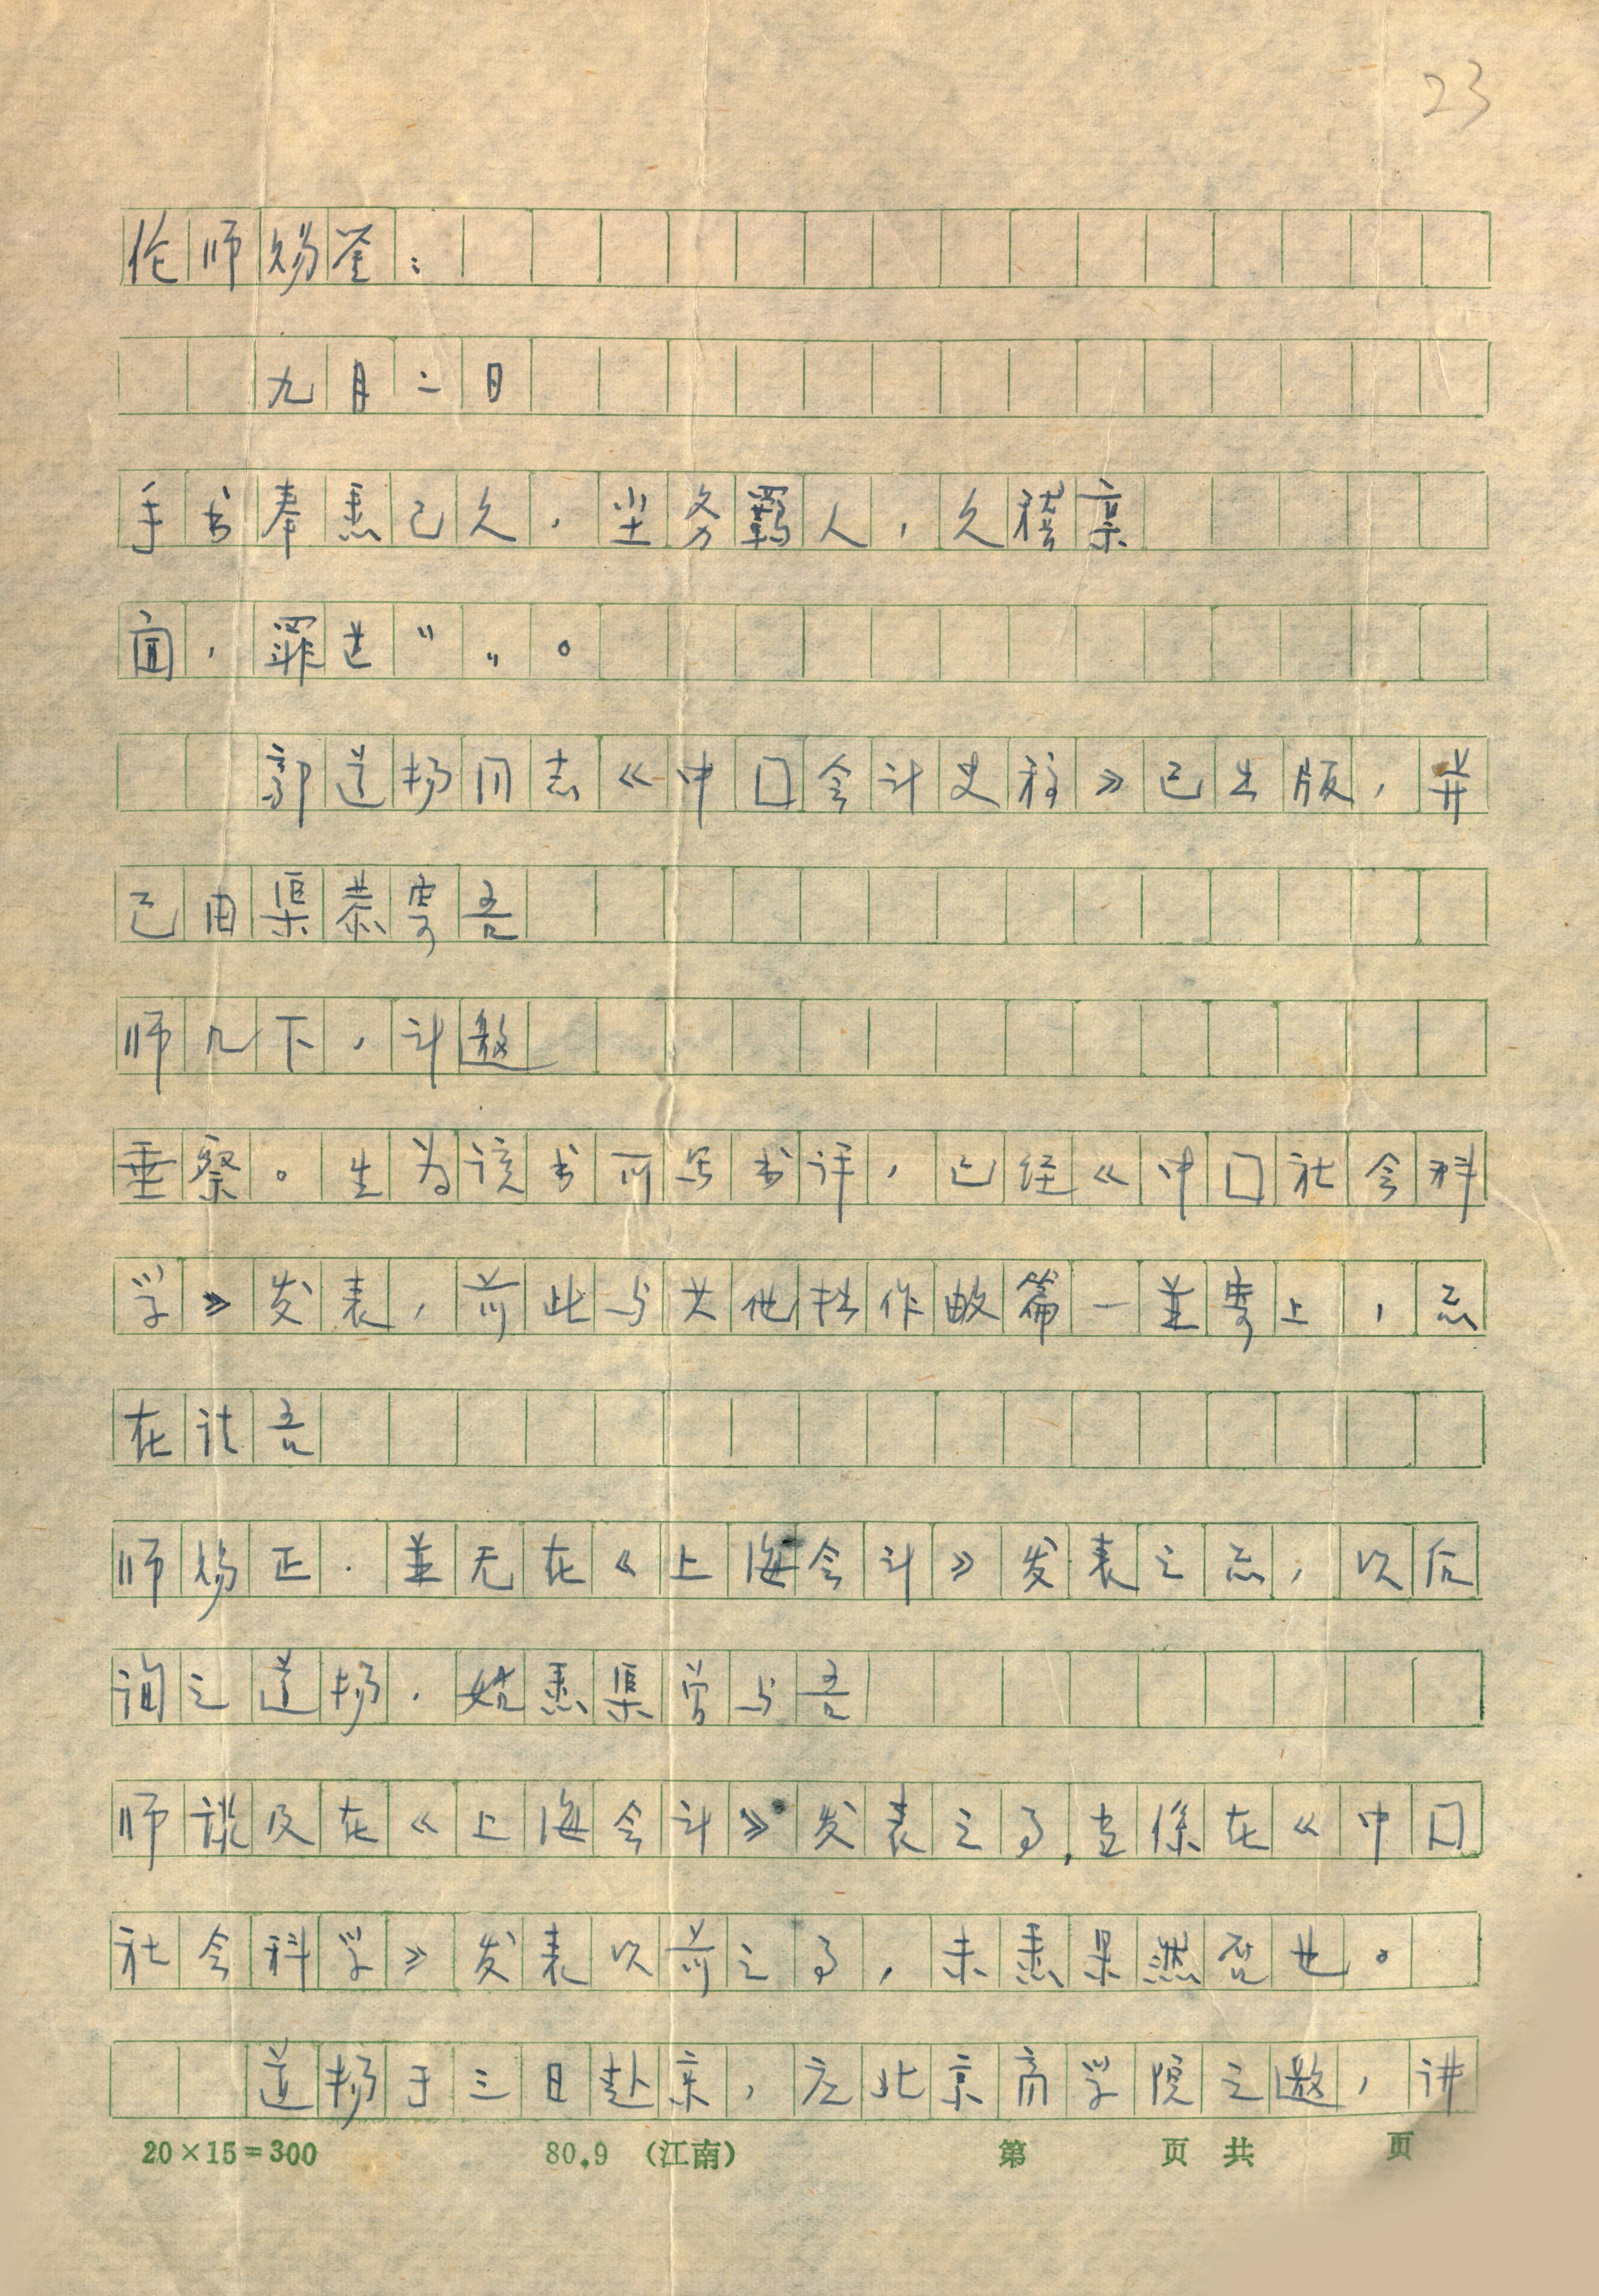 23
伦师赐鉴：
九月二日
手书奉悉已久，尘务羁人，久稽禀
面，罪甚〃〃。
郭道扬同志《中囗会计史稿》已出版，并
已由渠恭寄吾
师几下，计邀
垂察。生为该书所写书评，已经《中囗社会科
学》发表，前此与其他拙作数篇一並寄上，志
在请吾
师赐正．並无在《上海会计》发表之志，以后
询之道扬．始悉渠曾与吾
师谈及在《上海会计》发表之事，当係在《中囗
社会科学》发表以前之事，未悉果然否也。
道扬于三日赴京，应北京商学院之邀，讲
20×15=300 80.9 （江南） 第 页 共 页